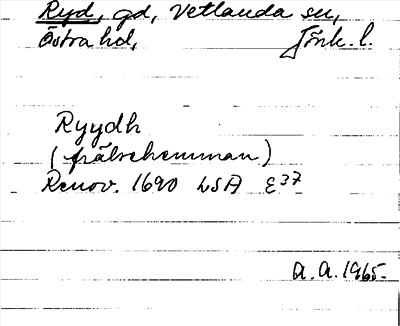 Ryd, gd, Vetlanda sn,
Östra hd, Jönk. l.
Ryydh
(frälsehemman)
Renov. 1690 LSA E37
A. A. 1965.